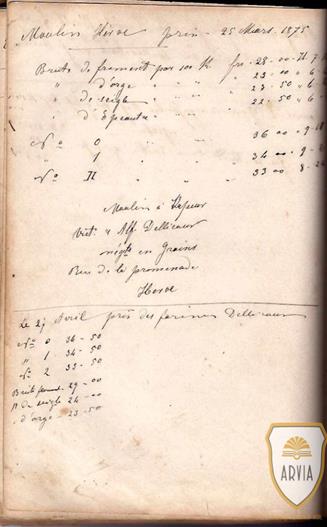 Moulin Herve prix - 25 Mars. 1875
Brute de froment par 100 K fr. 28-00
" d'orge " " " 23-00 " 6
" de seigle " " " 23-50 " 6
" d'Epeautre " " " 22-50 " 6
No 0 " " 36 00 - 9
" 1 " " 34 00 - 9
No II " " 33 00 8
Moulin à Vapeur
Vict. & Alf. Dellicour
négts en Grains
Rue de la promenade
Herve
Le 27 Avril prix des farines Dellicour
No 0 36-50
" 1 34-50
" 2 33-50
Brute froment 29-00
" de seigle 24-00
" d'orge 23-50
ARVIA